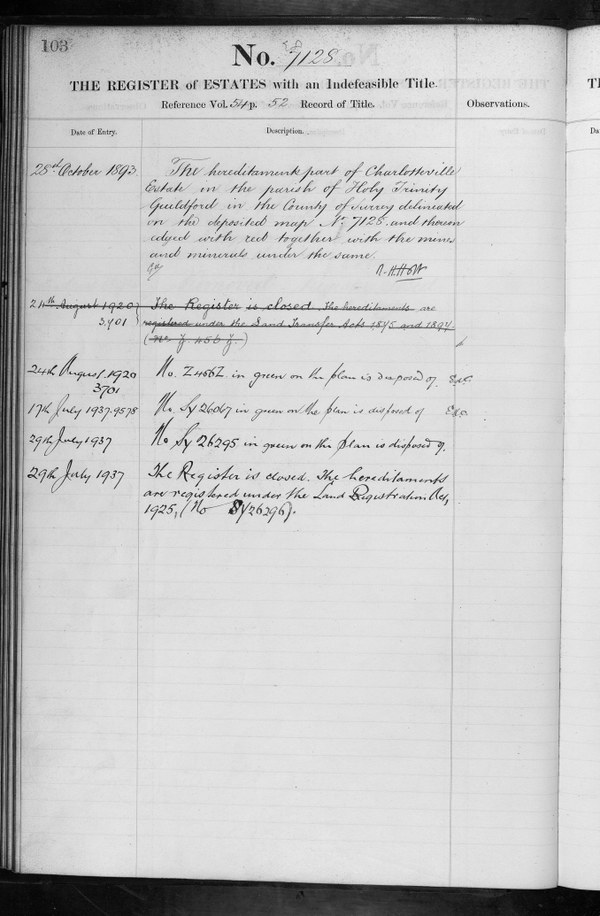 103
No. 7128
THE REGISTER of ESTATES with an Indefeasible Title.
Reference Vol. 54 p. 52 Record of Title.
Observations.
Date of Entry.
Description.
28th October 1893. The hereditaments part of Charlotteville
Estate in the parish of Holy Trinity
Guildford in the County of Surrey delineated
on the deposited map No. 7128. and thereon
edged with red together with the mines
and minerals under the same.
24th August 1920 The Register is closed. The hereditaments are
3701 registered under the Land Transfer Acts 1875 and 1897.
24th August 1920 No. Z456Z in green on the plan is disposed of.
3701
17th July 1937. 9578 No. Sy 26067 in green on the plan is disposed of
29th July 1937 No Sy 26295 in green on the plan is disposed of.
29th July 1937 The Register is closed. The hereditaments
are registered under the Land Registration Act,
1925, (No Sy 26296).